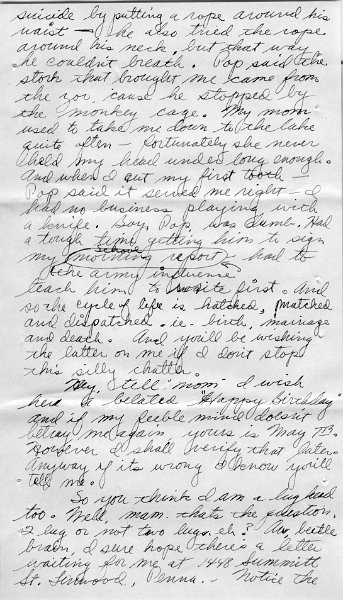 suicide by putting a rope around his
waist — he also tried the rope
around his neck, but that way
he couldn't breath. Pop said the
stork that brought me came from
the zoo, 'cause he stopped by
the monkey cage. My mom
used to take me down to the lake
quite often — fortunately she never
held my head under long enough.
And when I cut my first tooth
Pop said it served me right — I
had no business playing with
a knife. Boy, Pop, was dumb. Had
a tough time getting him to sign
my school (morning report) I had to
(the army influence)
teach him to write first. And
so the cycle of life is hatched, matched
and dispatched. ie - birth, marriage
and death. And you'll be wishing
the latter on me if I don't stop
this silly chatter.
Hey, tell "mom" I wish
her a belated "Happy Birthday"
and if my feeble mind doesn't
betray me again yours is May
However I shall verify that later.
Anyway if its wrong I know you'll
tell me.
So you think I am a lug head
too. Well, mam. thats the question.
I lug or not two lugs, eh? Aw, beetle
brain, I sure hope there's a letter
waiting for me at 1448 Summitt
St. Linwood, Penna. - Notice the